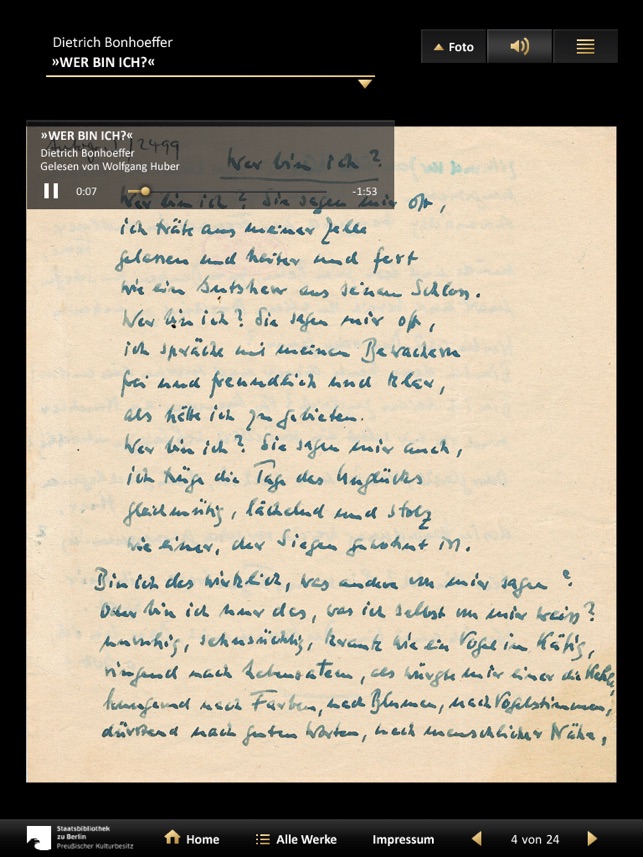 Dietrich Bonhoeffer
»WER BIN ICH?«
Foto
»WER BIN ICH?«
Dietrich Bonhoeffer
Gelesen von Wolfgang Huber
0:07
-1:53
Wer bin ich?
Wer bin ich? Sie sagen mir oft,
ich träte aus meiner Zelle
gelassen und heiter und fest
wie ein Gutsherr aus seinem Schloss.
Wer bin ich? Sie sagen mir oft,
ich spräche mit meinen Bewachern
frei und freundlich und klar,
als hätte ich zu gebieten.
Wer bin ich? Sie sagen mir auch,
ich trüge die Tage des Unglücks
gleichmütig, lächelnd und stolz
wie einer, der Siegen gewohnt ist.
Bin ich das wirklich, was andere von mir sagen?
Oder bin ich nur das, was ich selbst von mir weiss?
unruhig, sehnsüchtig, krank wie ein Vogel im Käfig,
ringend nach Lebensatem, als würgte mir einer die Kehle,
hungernd nach Farben, nach Blumen, nach Vogelstimmen,
dürstend nach guten Worten, nach menschlicher Nähe,
Staatsbibliothek
zu Berlin
Preußischer Kulturbesitz
Home
Alle Werke
Impressum
4 von 24